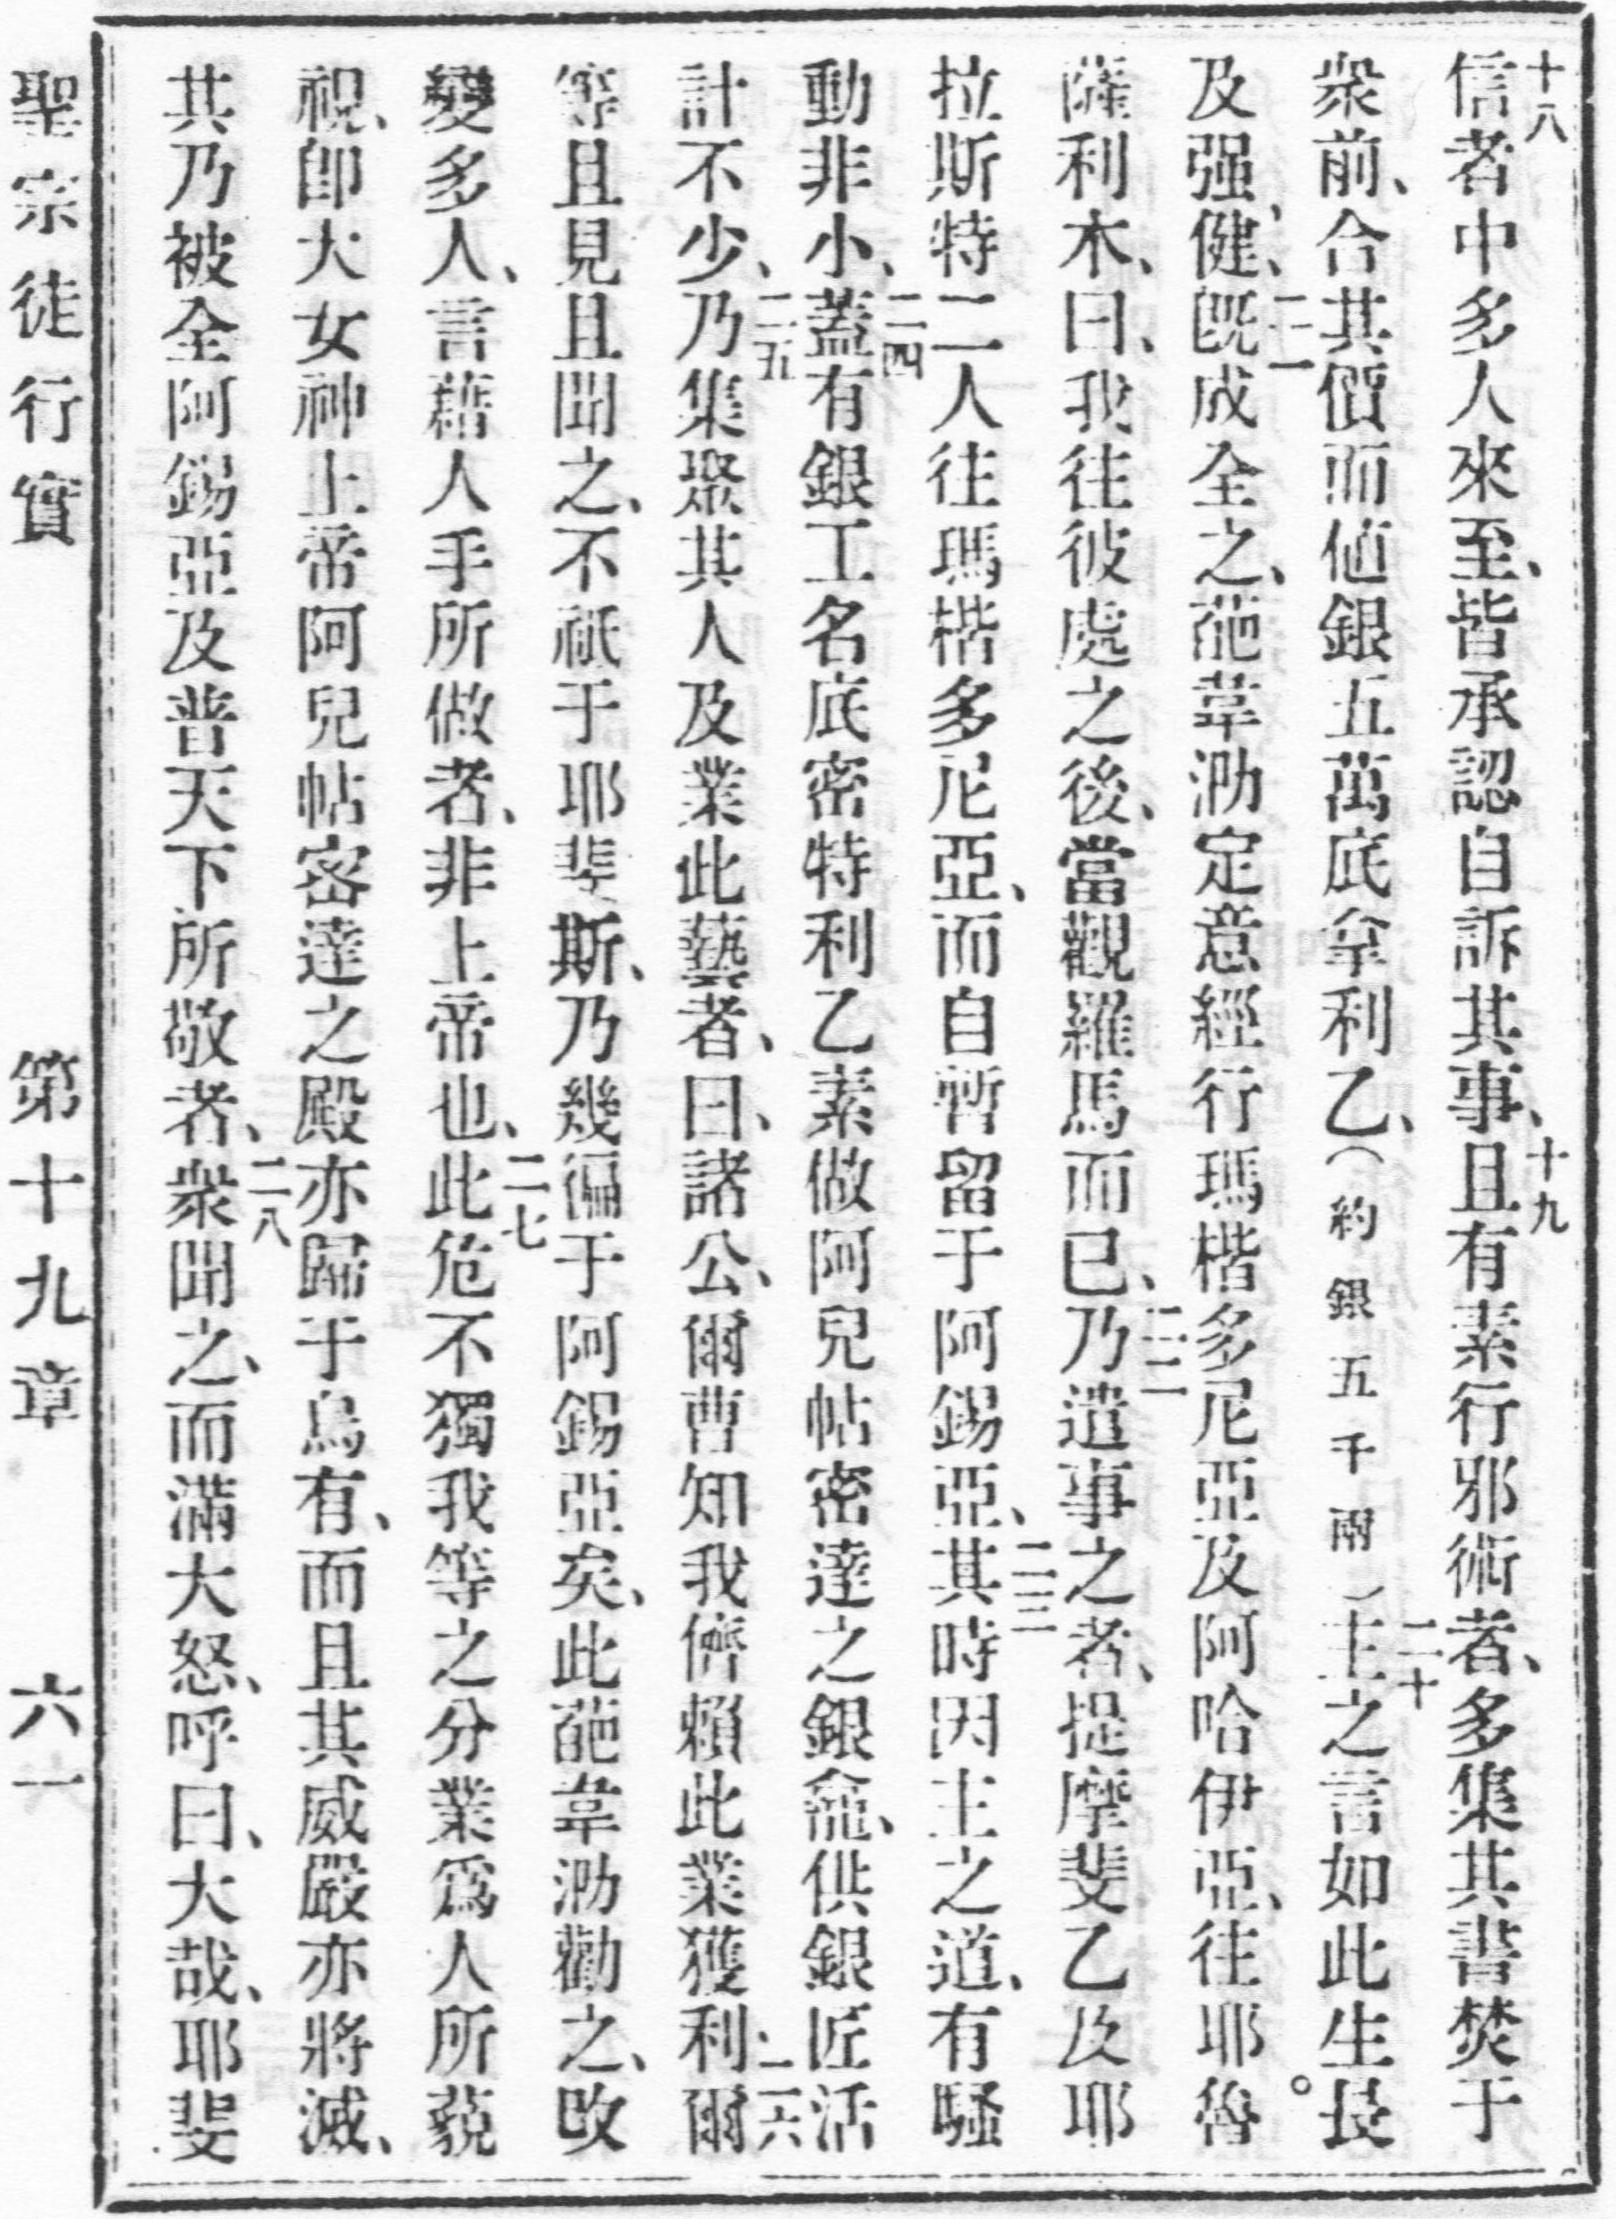 十八信者中多人來至、皆承認自訴其事、十九且有素行邪術者、多集其書焚于
衆前、合其價而値銀五萬底拿利乙、（約銀五千兩）二十主之言如此生長
及强健、二一旣成全之、葩韋泐定意經行瑪楷多尼亞及阿哈伊亞、往耶魯。
薩利木、曰、我往彼處之後、當觀羅馬而已、二二乃遣事之者、提摩斐乙及耶
拉斯特二人往瑪楷多尼亞、而自暫留于阿錫亞、二三其時因主之道、有騷
動非小、二四蓋有銀工名底密特利乙素做阿兒帖密達之銀龕、供銀匠活
計不少、二五乃集聚其人及業此藝者、曰、諸公、爾曹知我儕賴此業獲利、二六爾
等且見且聞之、不祇于耶斐斯、乃幾徧于阿錫亞矣、此葩韋泐勸之、改
變多人、言藉人手所做者、非上帝也、二七此危不獨我等之分業爲人所藐
視、卽大女神上帝阿兒帖密達之殿亦歸于烏有、而且其威嚴亦將滅、
其乃被全阿錫亞及普天下所敬者、二八衆聞之、而滿大怒、呼曰、大哉、耶斐
聖宗徒行實 第十九章 六一